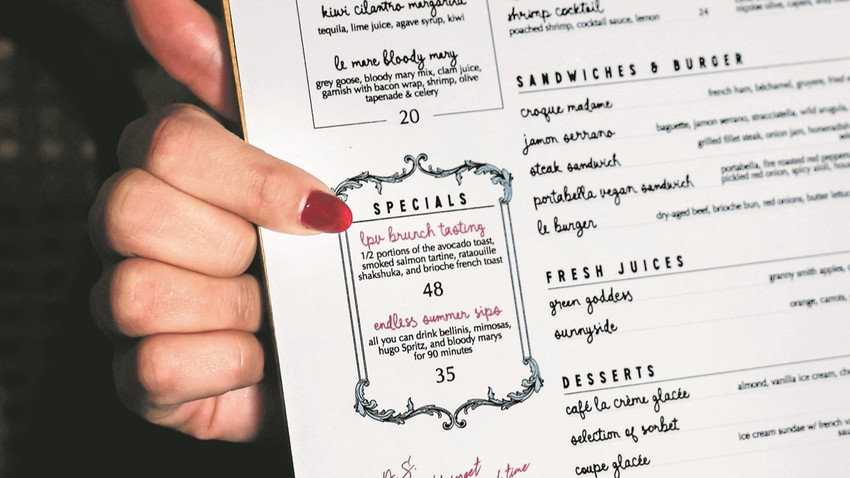 kiwi cilantro margarita
tequila, lime juice, agave syrup, kiwi
le mere bloody mary
grey goose, bloody mary mix, clam juice,
garnish with bacon wrap, shrimp, olive
tapenade & celery
20
SPECIALS
lpv brunch tasting
1/2 portions of the avocado toast,
smoked salmon tartine, rataouille
shakshuka, and brioche french toast
48
endless summer sips
all you can drink bellinis, mimosas,
hugo Spritz, and bloody marys
for 90 minutes
35
P.S.
shrimp cocktail
poached shrimp, cocktail sauce, lemon 24
SANDWICHES & BURGER
croque madame french ham, béchamel, gruyere, fried
jamon serrano baguette, jamon serrano, stracciatella, wild arugula,
steak sandwich grilled fillet steak, onion jam, horseradish
portabella vegan sandwich portabella, fire roasted red peppers
pickled red onion, spicy aioli,
le burger dry-aged beef, brioche bun, red onions, butter
FRESH JUICES
green goddess granny smith apples,
sunnyside orange, carrots,
DESSERTS
café la crème glacée almond, vanilla ice cream,
selection of sorbet
coupe glacée ice cream sundae w/ french